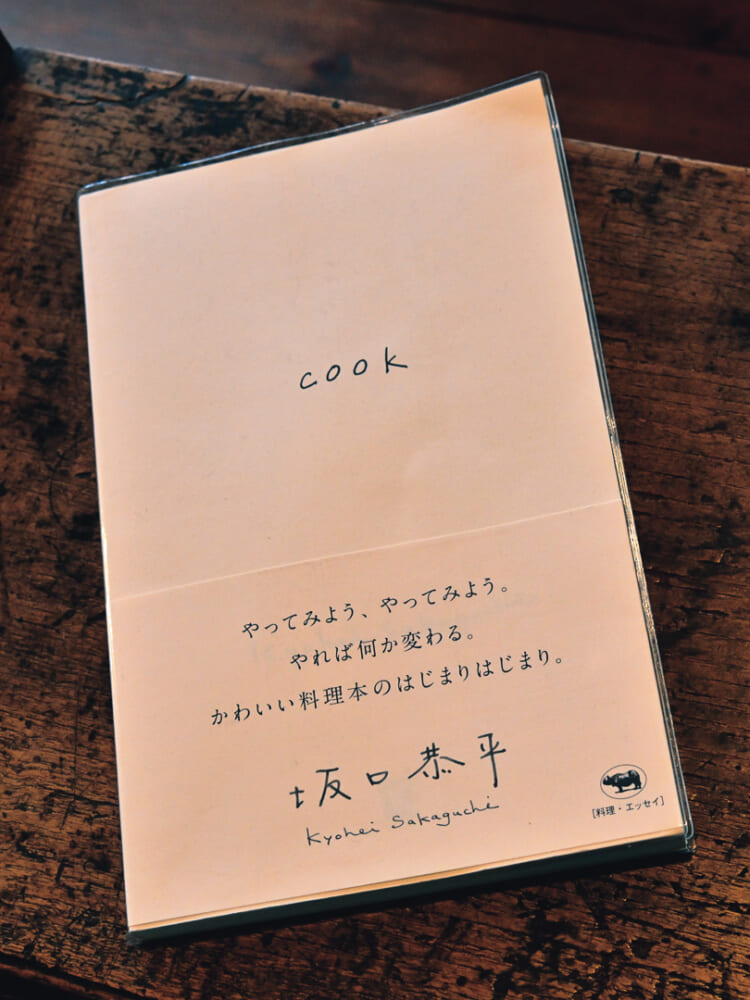 cook
やってみよう、やってみよう。
やれば何か変わる。
かわいい料理本のはじまりはじまり。
坂口恭平
Kyohei Sakaguchi
[料理・エッセイ]